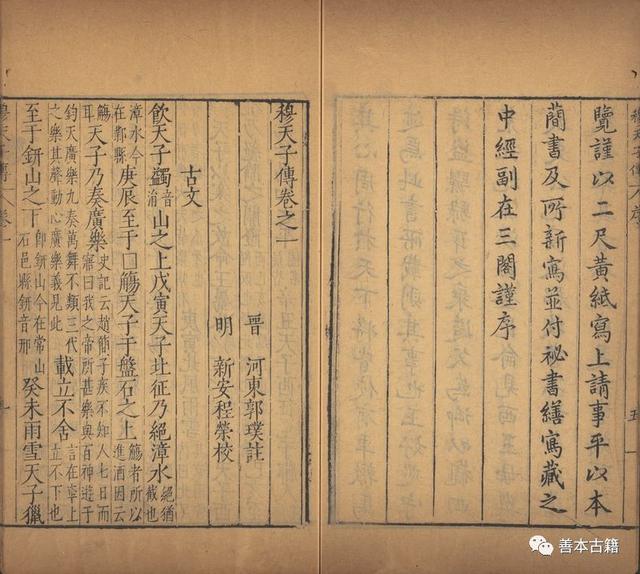 覽謹以二尺黃紙寫上請事平以本
蕳書及所新寫並付祕書繕寫藏之
中經副在三閣謹序
穆天子傳卷之一
晉 河東郭璞註
明 新安程榮校
古文
飲天子蠲音涓山之上戊寅天子北征乃絕漳水絕猶截也
漳水今在鄴縣庚辰至于□觴天子于盤石之上觴者所以進酒因云
觴耳天子乃奏廣樂史記云趙簡子疾不知人七日而寤曰我之帝所甚樂與百神遊于
鈞天廣樂九奏萬舞不類三代之樂其聲動心廣樂義見此載立不舍言在車上立不下也
至于鈃山之下即鈃山今在常山石邑縣鈃音邢癸未雨雪天子獵
善本古籍